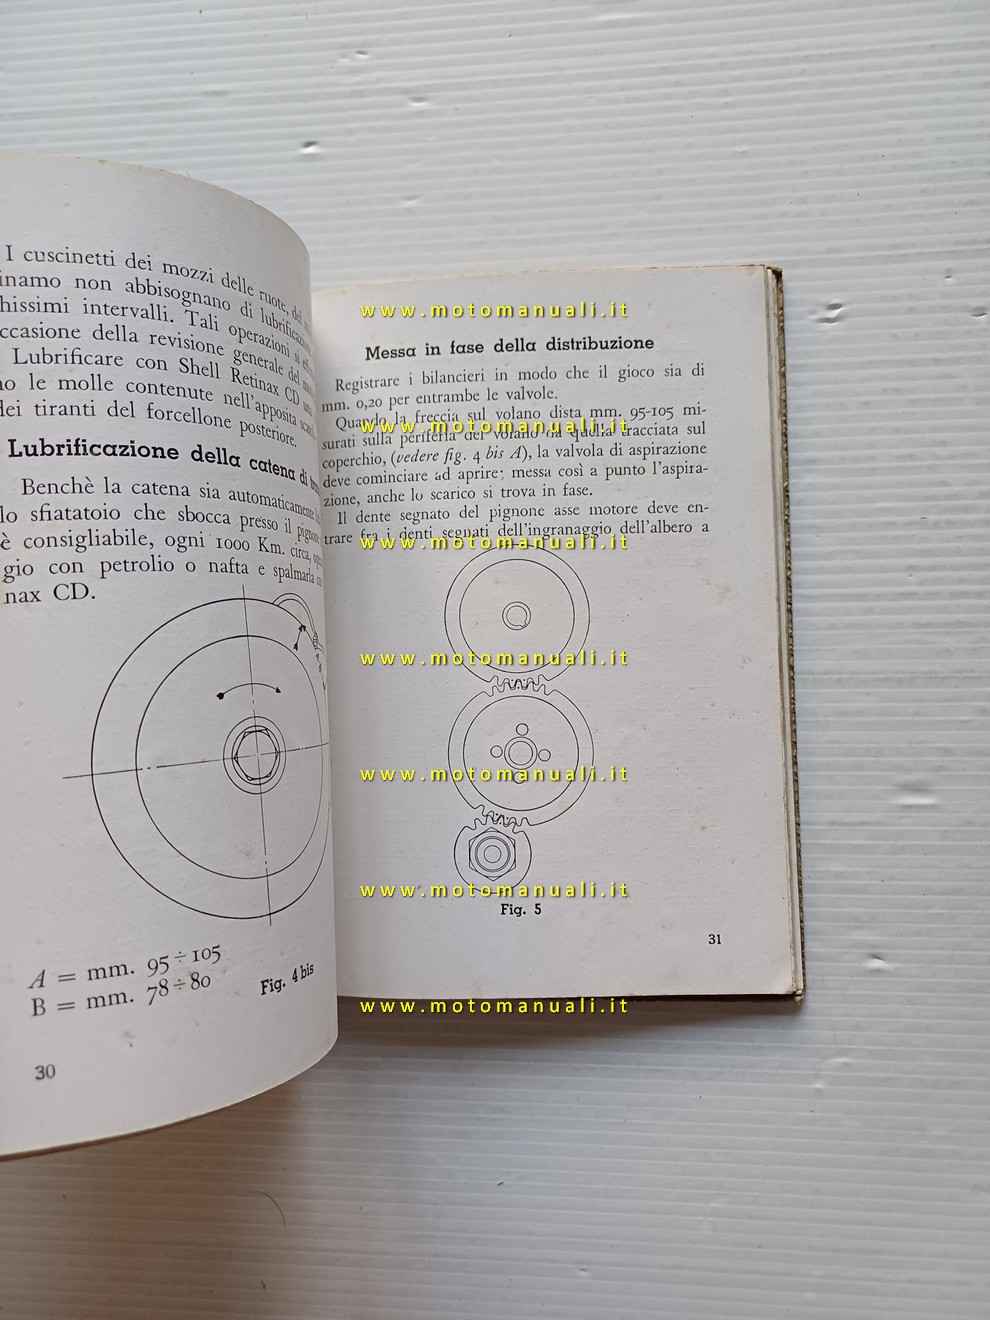 I cuscinetti dei mozzi delle ruote, del
inamo non abbisognano di lubrificazione
hissimi intervalli. Tali operazioni si
ccasione della revisione generale del
Lubrificare con Shell Retinax CD
no le molle contenute nell'apposita
dei tiranti del forcellone posteriore.
Lubrificazione della catena di
Benchè la catena sia automaticamente
lo sfiatatoio che sbocca presso il pignone
è consigliabile, ogni 1000 Km. circa,
gio con petrolio o nafta e spalmarla con
nax CD.
A
B
A = mm. 95÷105
B = mm. 78÷80
Fig. 4 bis
30
www.motomanuali.it
Messa in fase della distribuzione
Registrare i bilancieri in modo che il gioco sia di
mm. 0,20 per entrambe le valvole.
Quando la freccia sul volano dista mm. 95-105 mi-
www.motomanuali.it
surati sulla periferia del volano da quella tracciata sul
coperchio, (vedere fig. 4 bis A), la valvola di aspirazione
deve cominciare ad aprire; messa così a punto l'aspira-
zione, anche lo scarico si trova in fase.
Il dente segnato del pignone asse motore deve en-
trare fra i denti segnati dell'ingranaggio dell'albero a
www.motomanuali.it
www.motomanuali.it
www.motomanuali.it
www.motomanuali.it
Fig. 5
31
www.motomanuali.it